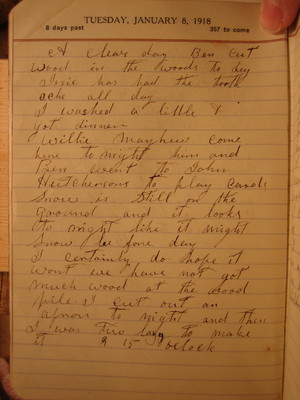 TUESDAY, JANUARY 8, 1918
8 days past 357 to come
A clear day Ben cut
wood in the woods to day
has had the tooth
ache all day
I washed a little &
got dinner
Willie Mayhew come
here to night him and
Ben went to John
Hutchersons to play cards
Snow is still on the
ground and it looks
to night like it might
snow be fore day
I certainly do hope it
wont we have not got
much wood at the wood
pile I cut out an
apron to night and then
I was too lazy to make
it 9 15 oclock